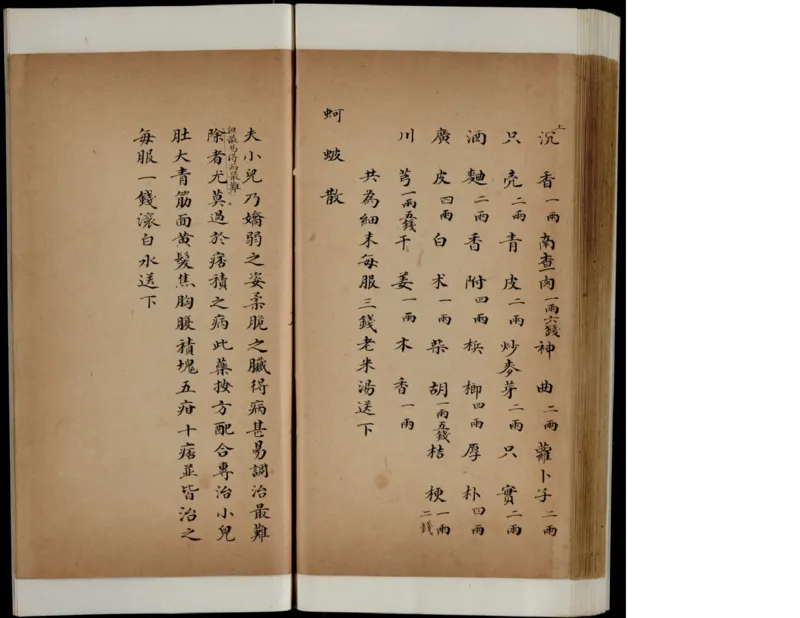 上
沉香一兩南查肉一兩六錢神曲二兩蘿卜子二兩
只壳二兩青皮二兩炒麥芽二兩只實二兩
酒麯二兩香附四兩梹榔四兩厚朴四兩
廣皮四兩白术一兩柴胡一兩五錢桔梗一兩二錢
川芎一兩五錢干姜一兩木香一兩
共為細末每服三錢老米湯送下
蚵蚾散
夫小兒乃嬌弱之姿柔脆之臟得病甚易調治最難
但最易得而最難
除者尤莫過於痞積之病此藥按方配合專治小兒
肚大青筋面黄髮焦胸腹積塊五疳十痞並皆治之
每服一錢滾白水送下